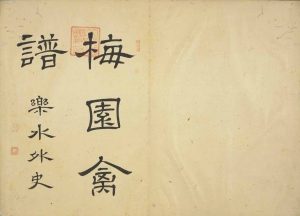 梅園禽
譜
樂水外史